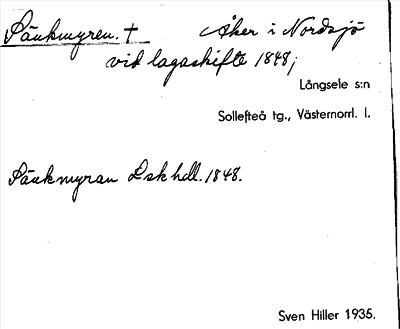 Säukmyren. † Åker i Nordsjö
vid lagaskifte 1848;
Långsele s:n
Sollefteå tg., Västernorrl. l.
Säukmyran Lsk hdl. 1848.
Sven Hiller 1935.